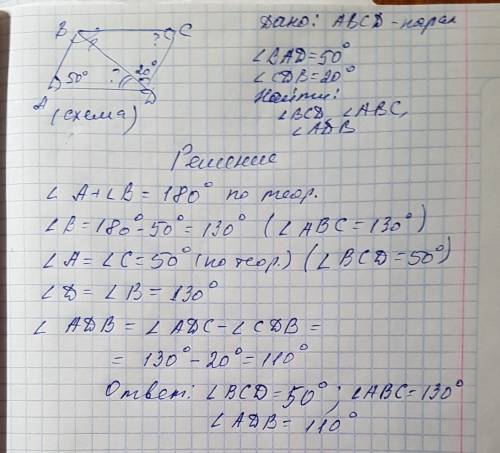 Дано: ABCD - парал
B C
50° 20°
? ? A D
(схема)
∠BAD=50°
∠CDB=20°
Найти:
∠BCD, ∠ABC,
∠ADB
Решение
∠A+∠B=180° по теор.
∠B=180°-50°=130° (∠ABC=130°)
∠A=∠C=50° (по теор.) (∠BCD=50°)
∠D=∠B=130°
∠ADB=∠ADC-∠CDB=
=130°-20°=110°
Ответ: ∠BCD=50°; ∠ABC=130°
∠ADB=110°